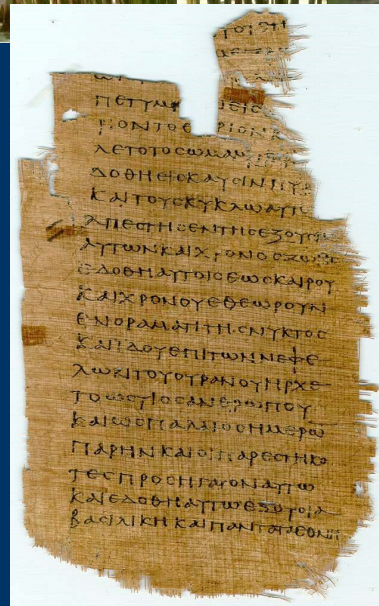 ΤΟΙΣΤΗ
ΠΕΤΥΜ
ΡΙΟΝ
ΛΕΤΟΤΟΣΩΜΑ
ΔΟΘΗΕΙΣΚΑΥΣΙΝΠΥΡ
ΚΑΙΤΟΥΣΚΥΚΛΩΑΥΤ
ΑΠΕΣΤΗΣΕΝΤΗΣΕΞΟΥΣΙ
ΑΥΤΩΝΚΑΙΧΡΟΝΟΣΖΩΗΣ
ΕΔΟΘΗΑΥΤΟΙΣΕΩΣΚΑΙΡΟΥ
ΚΑΙΧΡΟΝΟΥΕΘΕΩΡΟΥΝ
ΕΝΟΡΑΜΑΤΙΤΗΣΝΥΚΤΟΣ
ΚΑΙΙΔΟΥΕΠΙΤΩΝΝΕΦΕ
ΛΩΝΤΟΥΟΥΡΑΝΟΥΗΡΧΕ
ΤΟΩΣΥΙΟΣΑΝΘΡΩΠΟΥ
ΚΑΙΩΣΠΑΛΑΙΟΣΗΜΕΡΩ
ΠΑΡΗΝΚΑΙΟΙΠΑΡΕΣΤΗΚΟ
ΤΕΣΠΡΟΣΗΓΑΓΟΝΑΥΤΩ
ΚΑΙΕΔΟΘΗΑΥΤΩΕΞΟΥΣΙΑ
ΒΑΣΙΛΙΚΗΚΑΙΠΑΝΤΑΤΑΕΘΝΗ